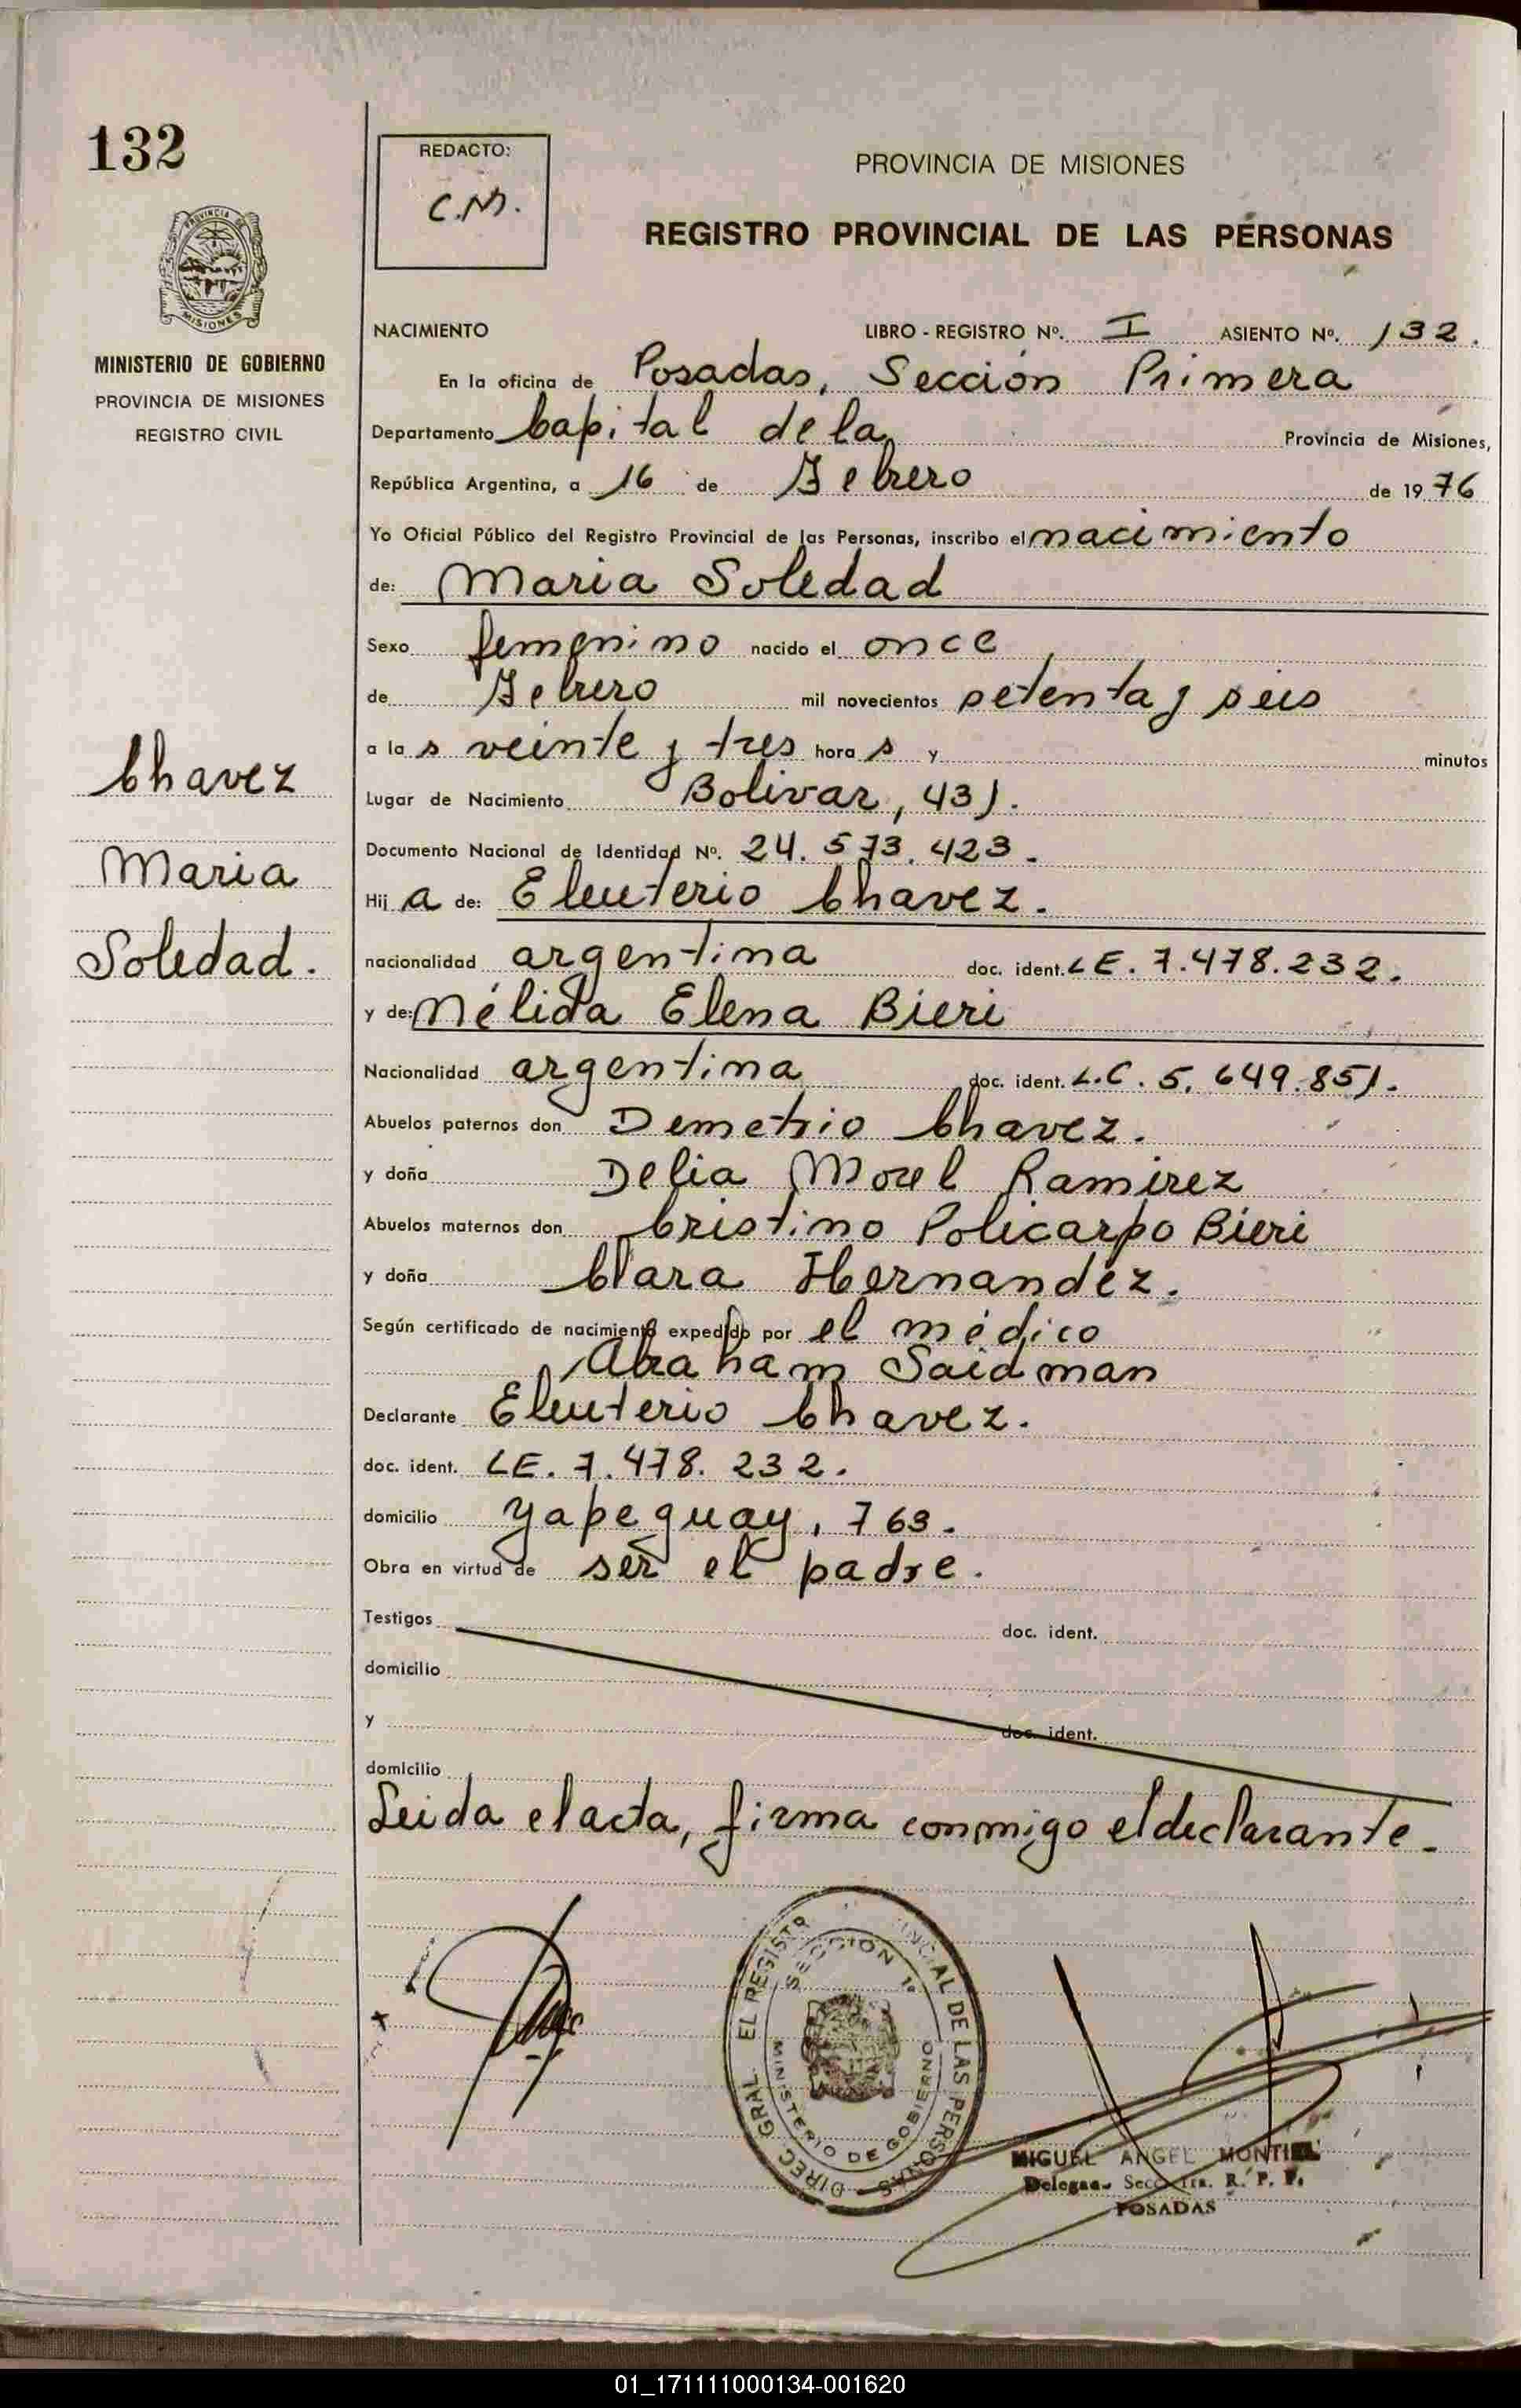 132
REDACTO:
C.M.
PROVINCIA DE MISIONES
REGISTRO PROVINCIAL DE LAS PERSONAS
PROVINCIA DE
MISIONES
MINISTERIO DE GOBIERNO
PROVINCIA DE MISIONES
REGISTRO CIVIL
NACIMIENTO LIBRO - REGISTRO Nº. I ASIENTO Nº. 132.
En la oficina de Posadas, Sección Primera
Departamento Capital de la Provincia de Misiones,
República Argentina, a 16 de Febrero de 19 76
Yo Oficial Público del Registro Provincial de las Personas, inscribo el nacimiento
de: Maria Soledad
Sexo femenino nacido el once
de Febrero mil novecientos setenta y seis
a la s veinte y tres hora s y minutos
Chavez
Maria
Soledad.
Lugar de Nacimiento Bolivar, 431.
Documento Nacional de Identidad Nº. 24.573.423.
Hij a de: Eleuterio Chavez.
nacionalidad argentina doc. ident. L E. 7.478.232.
y de: Nélida Elena Bieri
Nacionalidad argentina doc. ident. L.C. 5.649.851.
Abuelos paternos don Demetrio Chavez.
y doña Delia Morel Ramirez
Abuelos maternos don Cristino Policarpo Bieri
y doña Clara Hernandez.
Según certificado de nacimiento expedido por el médico
Abraham Saidman
Declarante Eleuterio Chavez.
doc. ident. LE. 7.478.232.
domicilio Yapeguay, 763.
Obra en virtud de ser el padre.
Testigos doc. ident.
domicilio
y doc. ident.
domicilio
Leida el acta, firma conmigo el declarante.
DIREC GRAL. EL REGISTR INCIAL DE LAS PERSONAS
SECCION 1ª
MINISTERIO DE GOBIERNO
MIGUEL ANGEL MONTIEL
Secc. R. P. P.
POSADAS
01_171111000134-001620